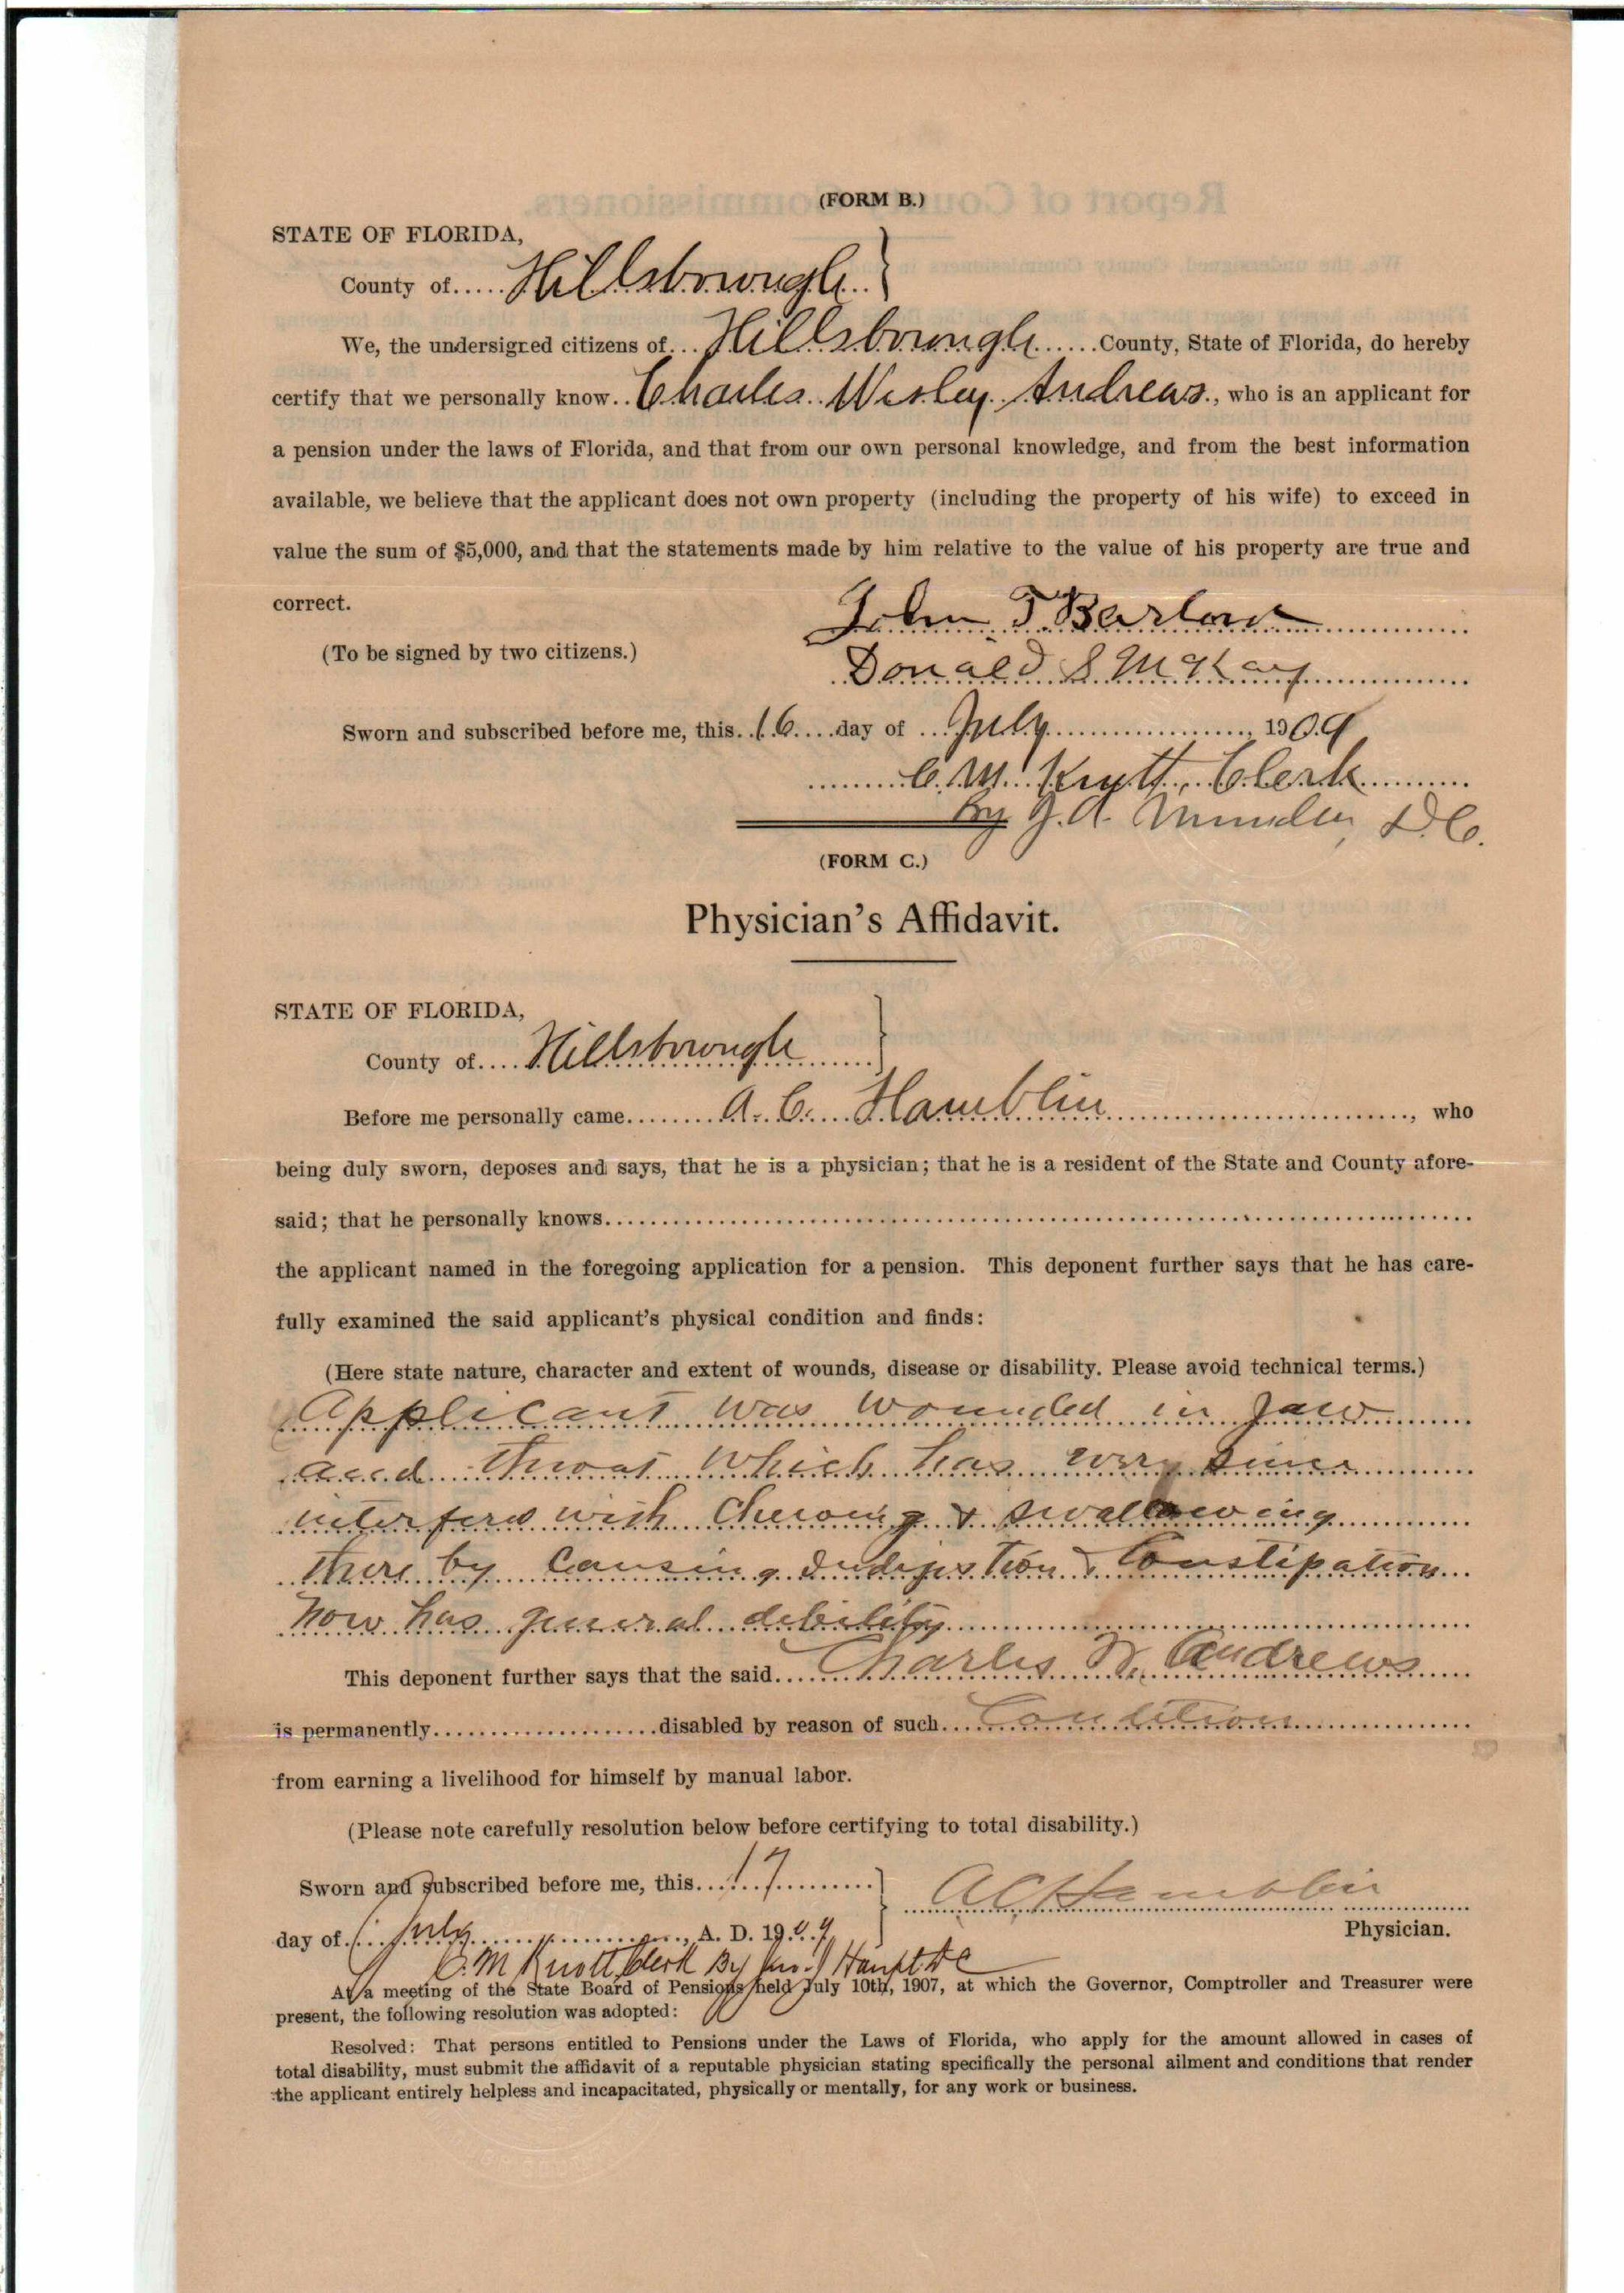 (FORM B.)
STATE OF FLORIDA,
County of Hillsborough
We, the undersigned citizens of Hillsborough County, State of Florida, do hereby
certify that we personally know Charles Wesley Andrews, who is an applicant for
a pension under the laws of Florida, and that from our own personal knowledge, and from the best information
available, we believe that the applicant does not own property (including the property of his wife) to exceed in
value the sum of $5,000, and that the statements made by him relative to the value of his property are true and
correct.
John T Barlow
(To be signed by two citizens.)
Donald S McKay
Sworn and subscribed before me, this 16 day of July, 1909
C. M. Knott, Clerk
By J. A. D. C.
(FORM C.)
Physician's Affidavit.
STATE OF FLORIDA,
County of Hillsborough
Before me personally came A. C. Hamblin, who
being duly sworn, deposes and says, that he is a physician; that he is a resident of the State and County afore-
said; that he personally knows
the applicant named in the foregoing application for a pension. This deponent further says that he has care-
fully examined the said applicant's physical condition and finds:
(Here state nature, character and extent of wounds, disease or disability. Please avoid technical terms.)
Applicant was wounded in Jaw
and throat which has since
interfered with chewing & swallowing
there by causing Indigestion & Constipation
now has general debility
This deponent further says that the said Charles W. Andrews
is permanently disabled by reason of such Condition
from earning a livelihood for himself by manual labor.
(Please note carefully resolution below before certifying to total disability.)
Sworn and subscribed before me, this 17
A C Hamblin
day of July, A. D. 1909
Physician.
C. M Knott Clerk By Haupt D C
At a meeting of the State Board of Pensions held July 10th, 1907, at which the Governor, Comptroller and Treasurer were
present, the following resolution was adopted:
Resolved: That persons entitled to Pensions under the Laws of Florida, who apply for the amount allowed in cases of
total disability, must submit the affidavit of a reputable physician stating specifically the personal ailment and conditions that render
the applicant entirely helpless and incapacitated, physically or mentally, for any work or business.